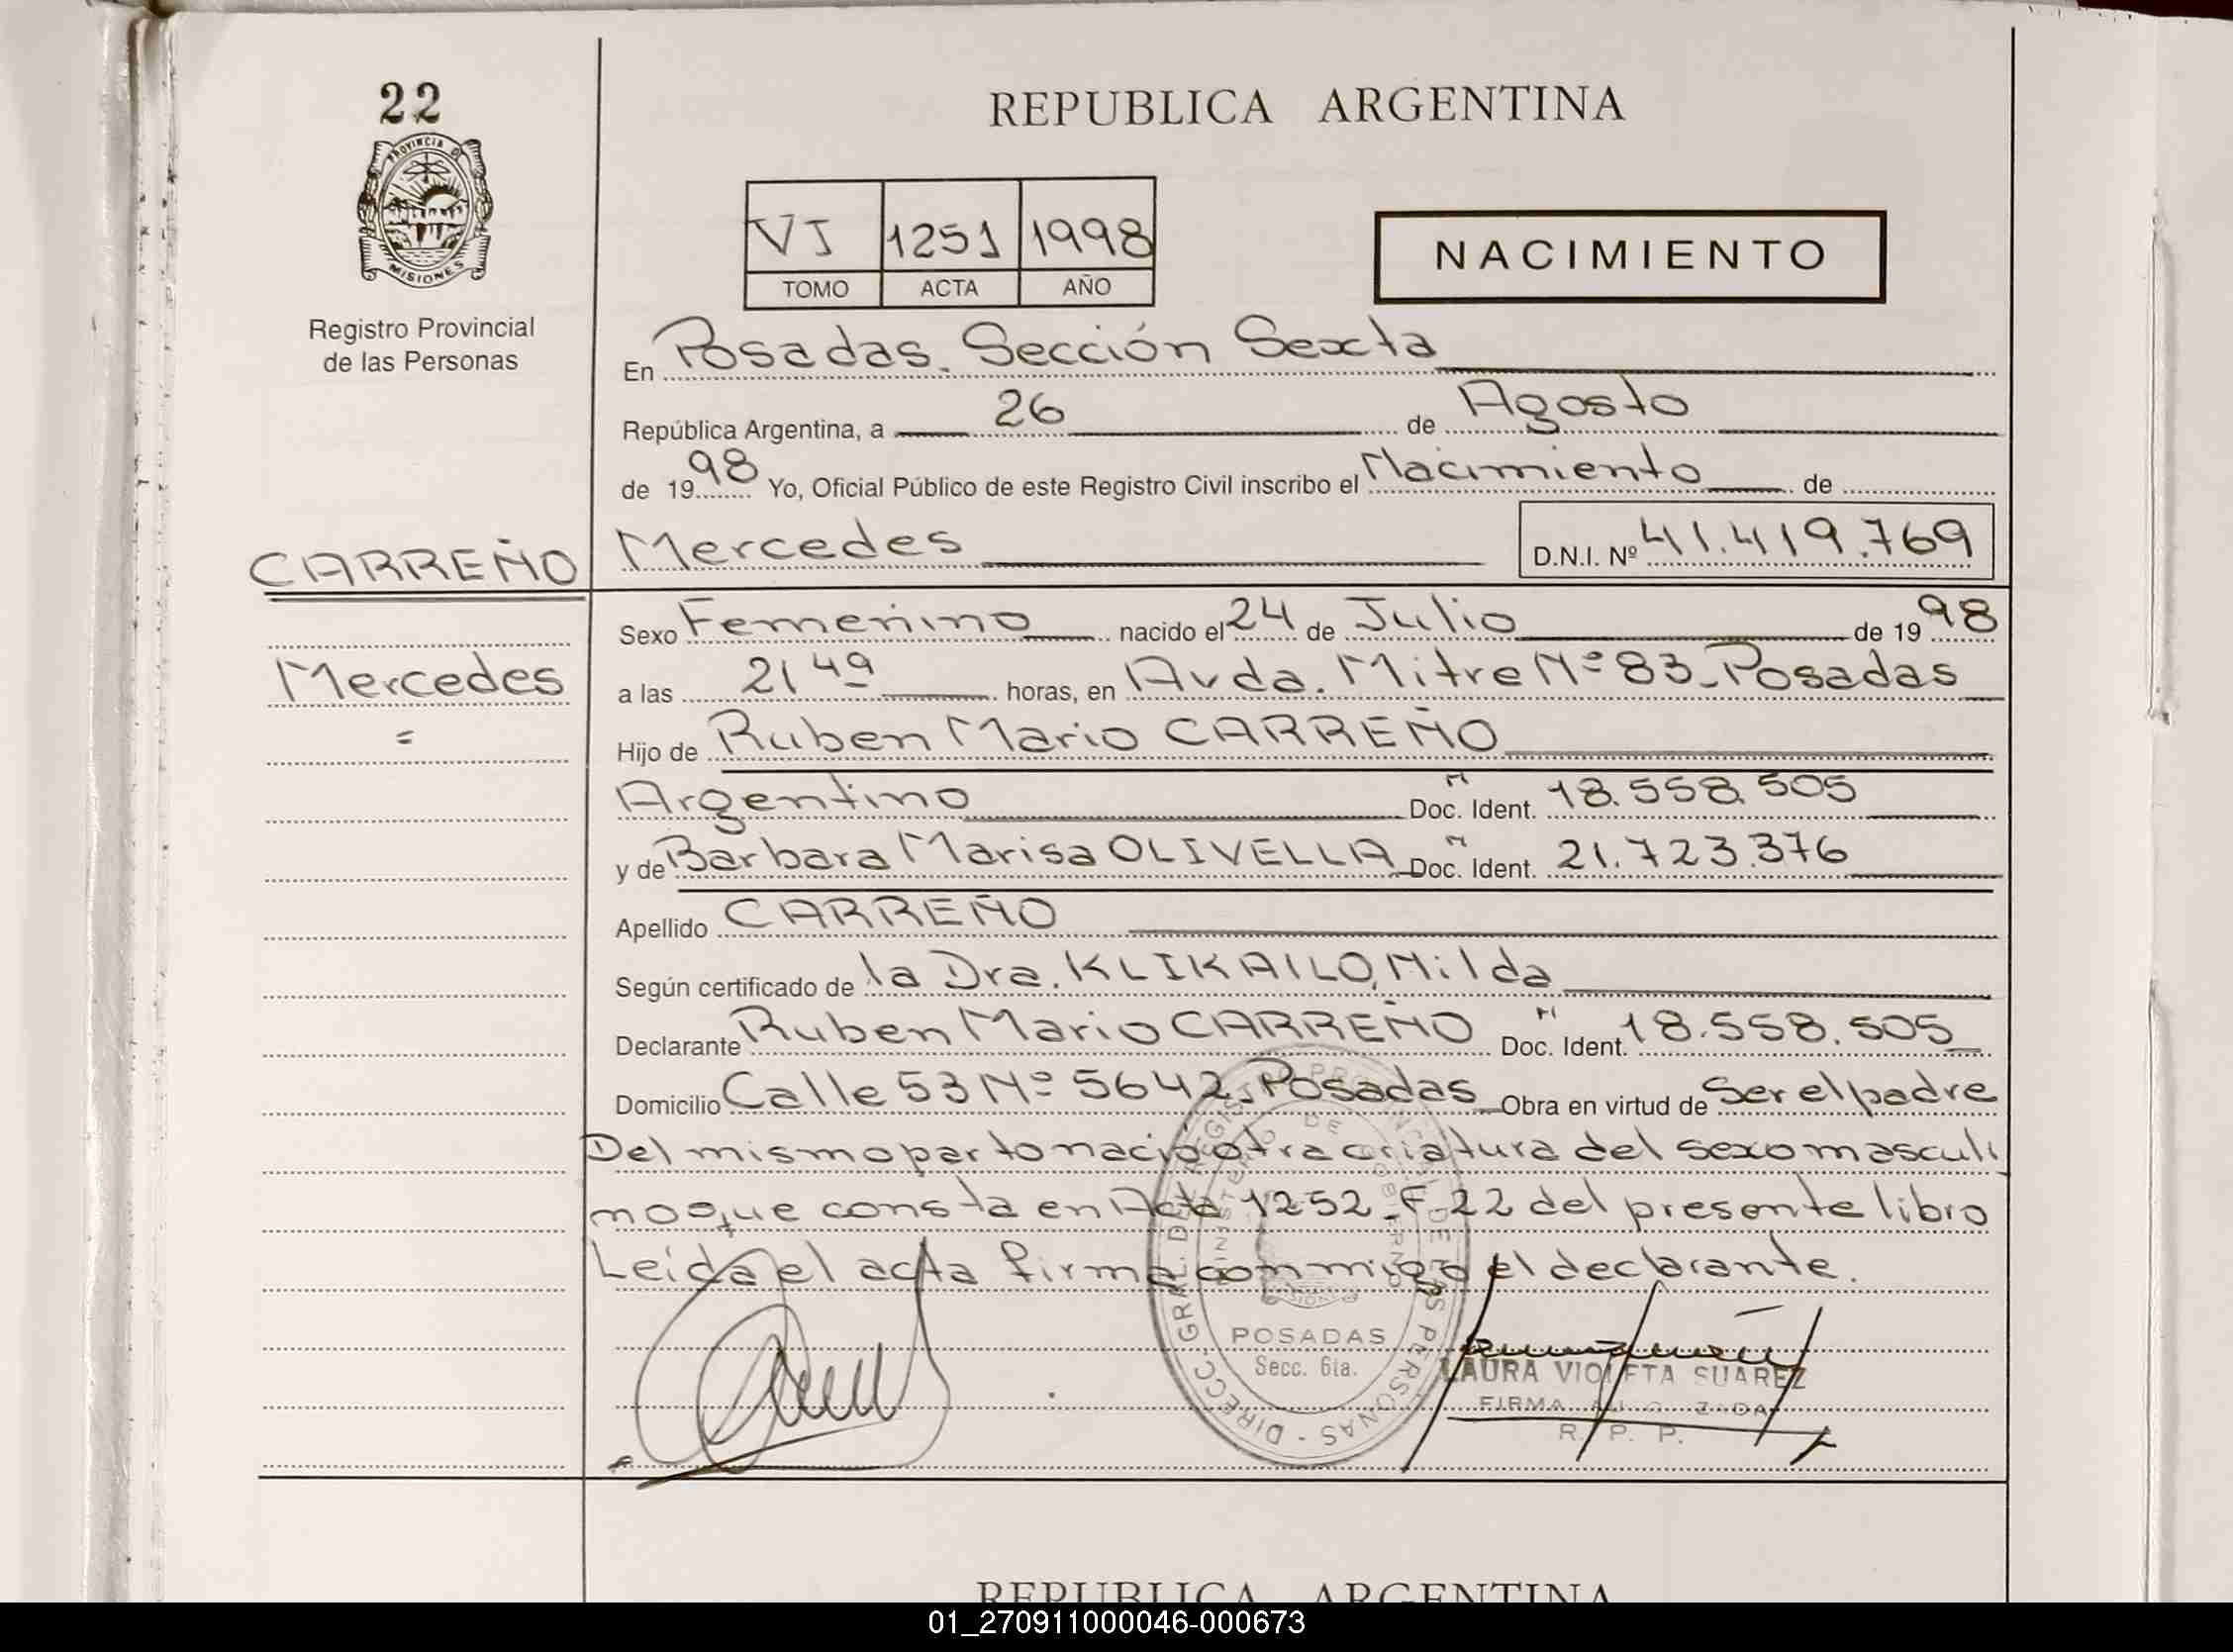 22
REPUBLICA ARGENTINA
PROVINCIA DE
MISIONES
Registro Provincial
de las Personas
VI 1251 1998
TOMO ACTA AÑO
NACIMIENTO
En Posadas. Sección Sexta
República Argentina, a 26 de Agosto
de 1998 Yo, Oficial Público de este Registro Civil inscribo el Nacimiento de
CARREÑO Mercedes D.N.I. Nº 41.419.769
Sexo Femenino nacido el 24 de Julio de 1998
Mercedes a las 21 49 horas, en Avda. Mitre Nº 83_Posadas
=
Hijo de Ruben Mario CARREÑO
Argentino Doc. N Ident. 18.558.505
y de Barbara Marisa OLIVELLA Doc. N Ident. 21.723.376
Apellido CARREÑO
Según certificado de la Dra. KLIKAILO, Nilda
Declarante Ruben Mario CARREÑO Doc. N Ident. 18.558.505
Domicilio Calle 53 Nº 5642_Posadas Obra en virtud de Ser el padre
Del mismo parto nació otra criatura del sexo masculi
no que consta en Acta 1252_F 22 del presente libro
Leída el acta firma conmigo el declarante.
DIRECC. GRAL. DEL REGISTRO PROVINCIAL DE LAS PERSONAS
MINISTERIO DE GOBIERNO
POSADAS
Secc. 6ta.
LAURA VIOLETA SUAREZ
FIRMA AUTORIZADA
R. P. P.
REPUBLICA ARGENTINA
01_270911000046-000673